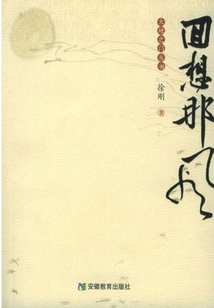 回想那风
徐刚 著
安徽教育出版社